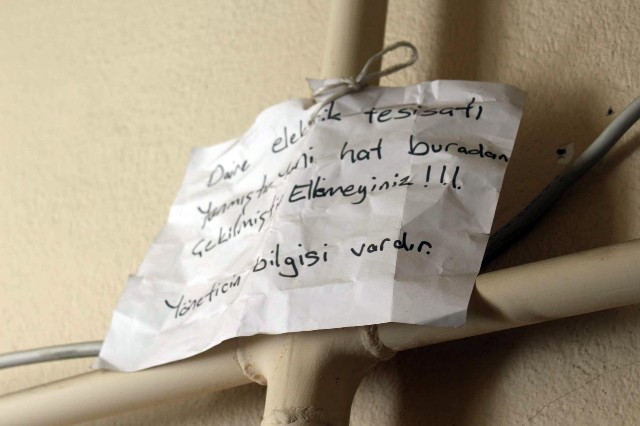 Daire elektrik tesisatı
Yanmıştır yeni hat buradan
Çekilmiştir Ellemeyiniz!!!
Yöneticin bilgisi vardır.